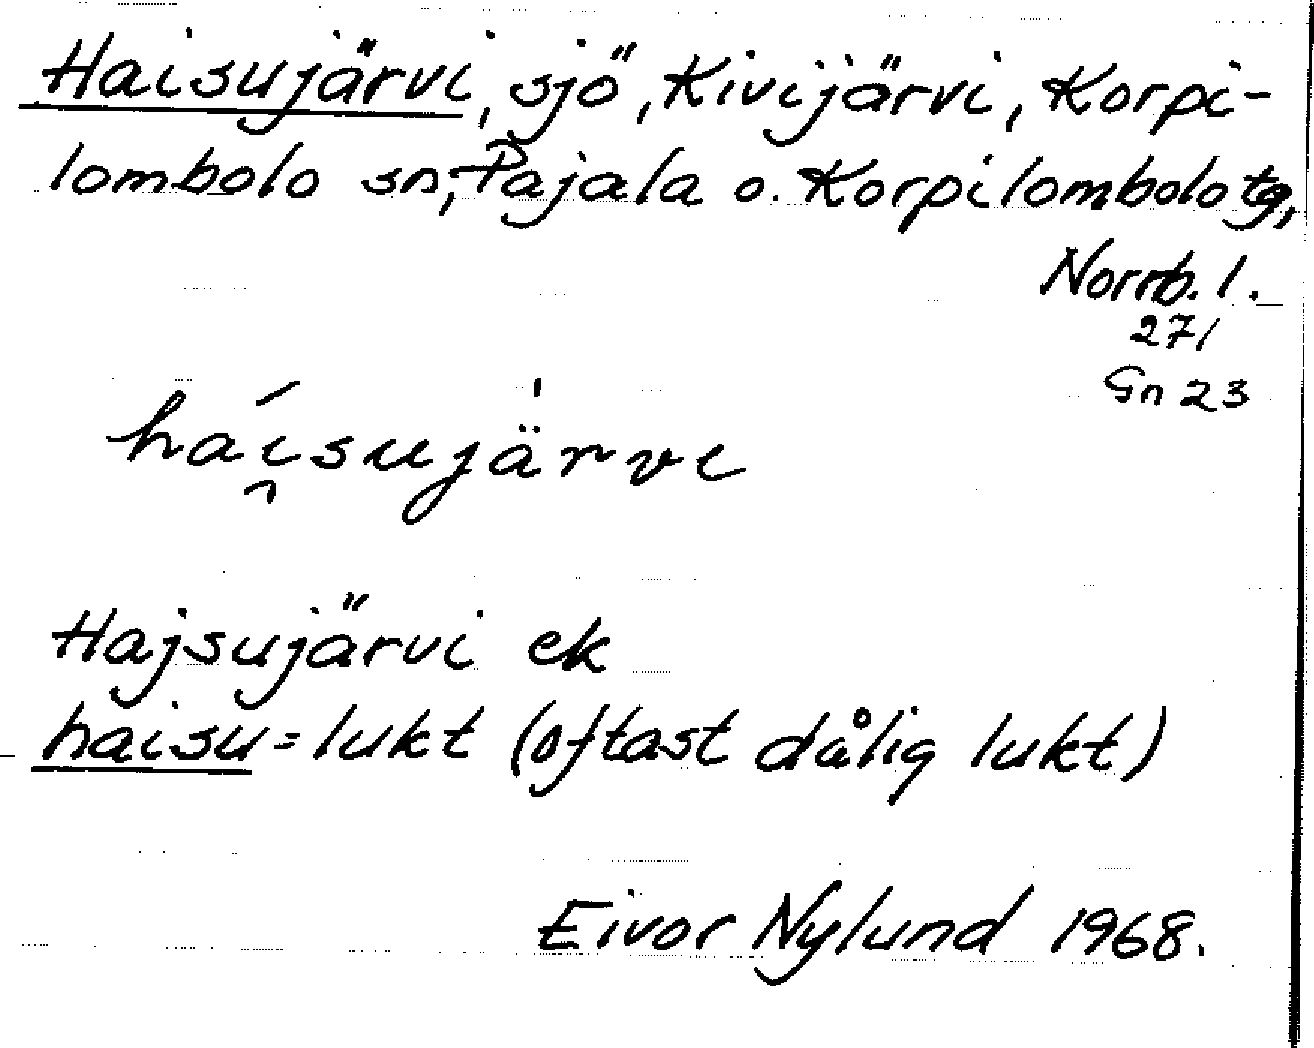 Haisujärvi, sjö, Kivijärvi, Korpi-
lombolo sn, Pajala o. Korpilombolo tg,
Norrb. l.
271
Gn 23
hái̯sujä̍rvi
Hajsujärvi ek
haisu = lukt (oftast dålig lukt)
Eivor Nylund 1968.